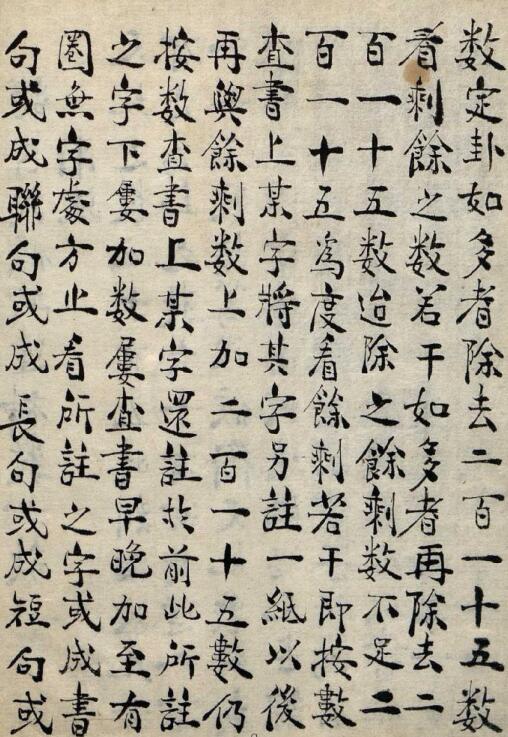 数定卦如多者除去二百一十五数
看剩餘之数若干如多者再除去二
百一十五数迨除之餘剩数不足二
百一十五為度看餘剩若干即按數
查書上某字將其字另註一紙以後
再與餘剩数上加二百一十五數仍
按数查書上某字還註於前此所註
之字下屢加数屢查書早晚加至有
圈無字處方止看所註之字或成書
句或成聯句或成長句或成短句或